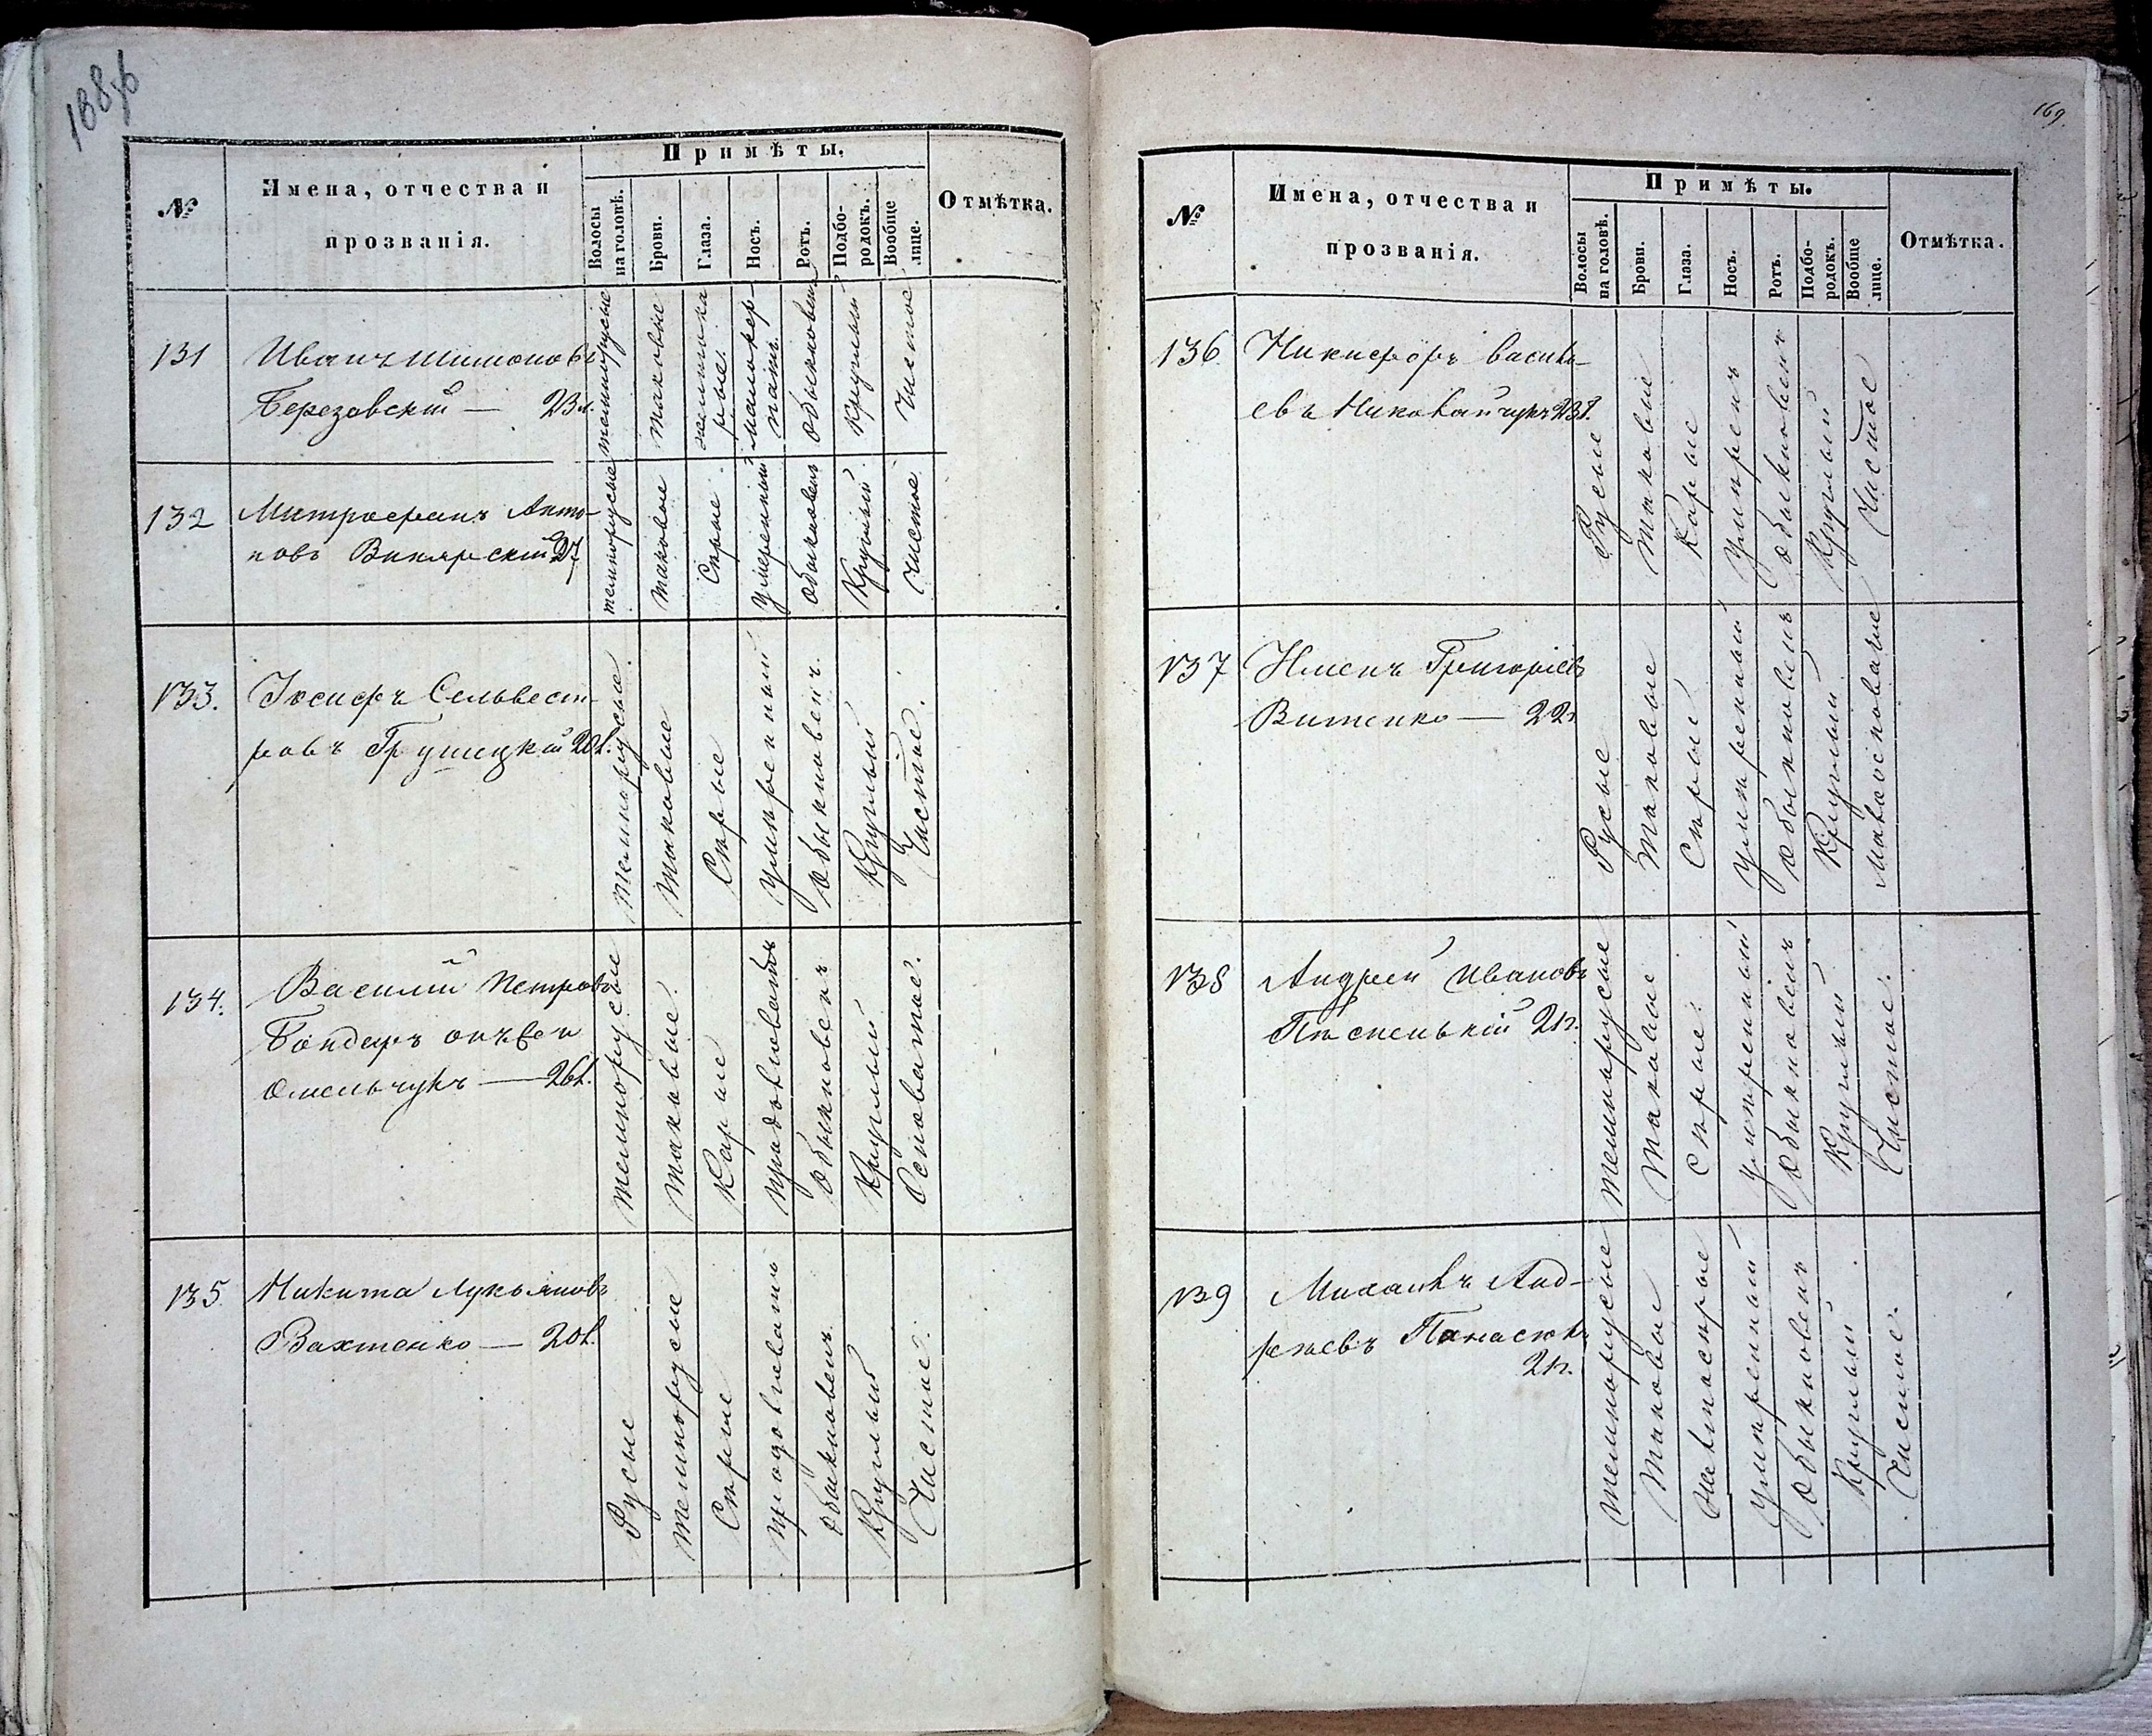 №
Имена, отчества и
прозванія.
Примѣты.
Волосы
на головѣ.
Брови.
Глаза.
Носъ.
Ротъ.
Подбо-
родокъ.
Вообще
лице.
Отмѣтка.
131
Иванъ Шимоновъ
Березовскій — 23 л.
темнорусые
таковые
желтока
рые
обыкновенъ
круглый
чистое
132
Митрофанъ Анто-
новъ
темнорусые
таковые
Сѣрые
умѣренный
обыкновенъ
Круглый
чистое
133.
Іосифъ Сельвест-
ровъ Грушецкій 20 л.
темнорусые
таковые
Сѣрые
умѣренный
обыкновенъ.
Круглый
Чистое.
134.
Василій Петровъ
Бондарь онъ же и
Омельчукъ — 26 л.
темнорусые
таковые.
Карые
продолговатъ
обыкновенъ
Круглый
Осповатое.
135
Никита Лукьяновъ
Вахтенко — 20 л.
Русые
темнорусые
Сѣрые
продолговатъ
обыкновенъ
Круглый
Чистое.
169.
№
Имена, отчества и
прозванія.
Примѣты.
Волосы
на головѣ.
Брови.
Глаза.
Носъ.
Ротъ.
Подбо-
родокъ.
Вообще
лице.
Отмѣтка.
136
Никифоръ Василь-
евъ Николайчукъ 23 л.
Русые
таковые
Карые
Умѣренъ
обыкновенъ
Круглый
Чистое
137
Григоріевъ
Витенко — 22 л
Русые
таковые
Сѣрые
умѣренный
обыкновенъ
Круглый
Малоосповатое
138
Андрей Ивановъ
21 л.
темнорусые
таковые
сѣрые.
умѣренный
обыкновенъ
Круглый
Чистое.
139
Михаилъ Анд-
реевъ Панасюкъ
21 л.
темнорусые
таковые
умѣренный
обыкновенъ
Круглый
Чистое.